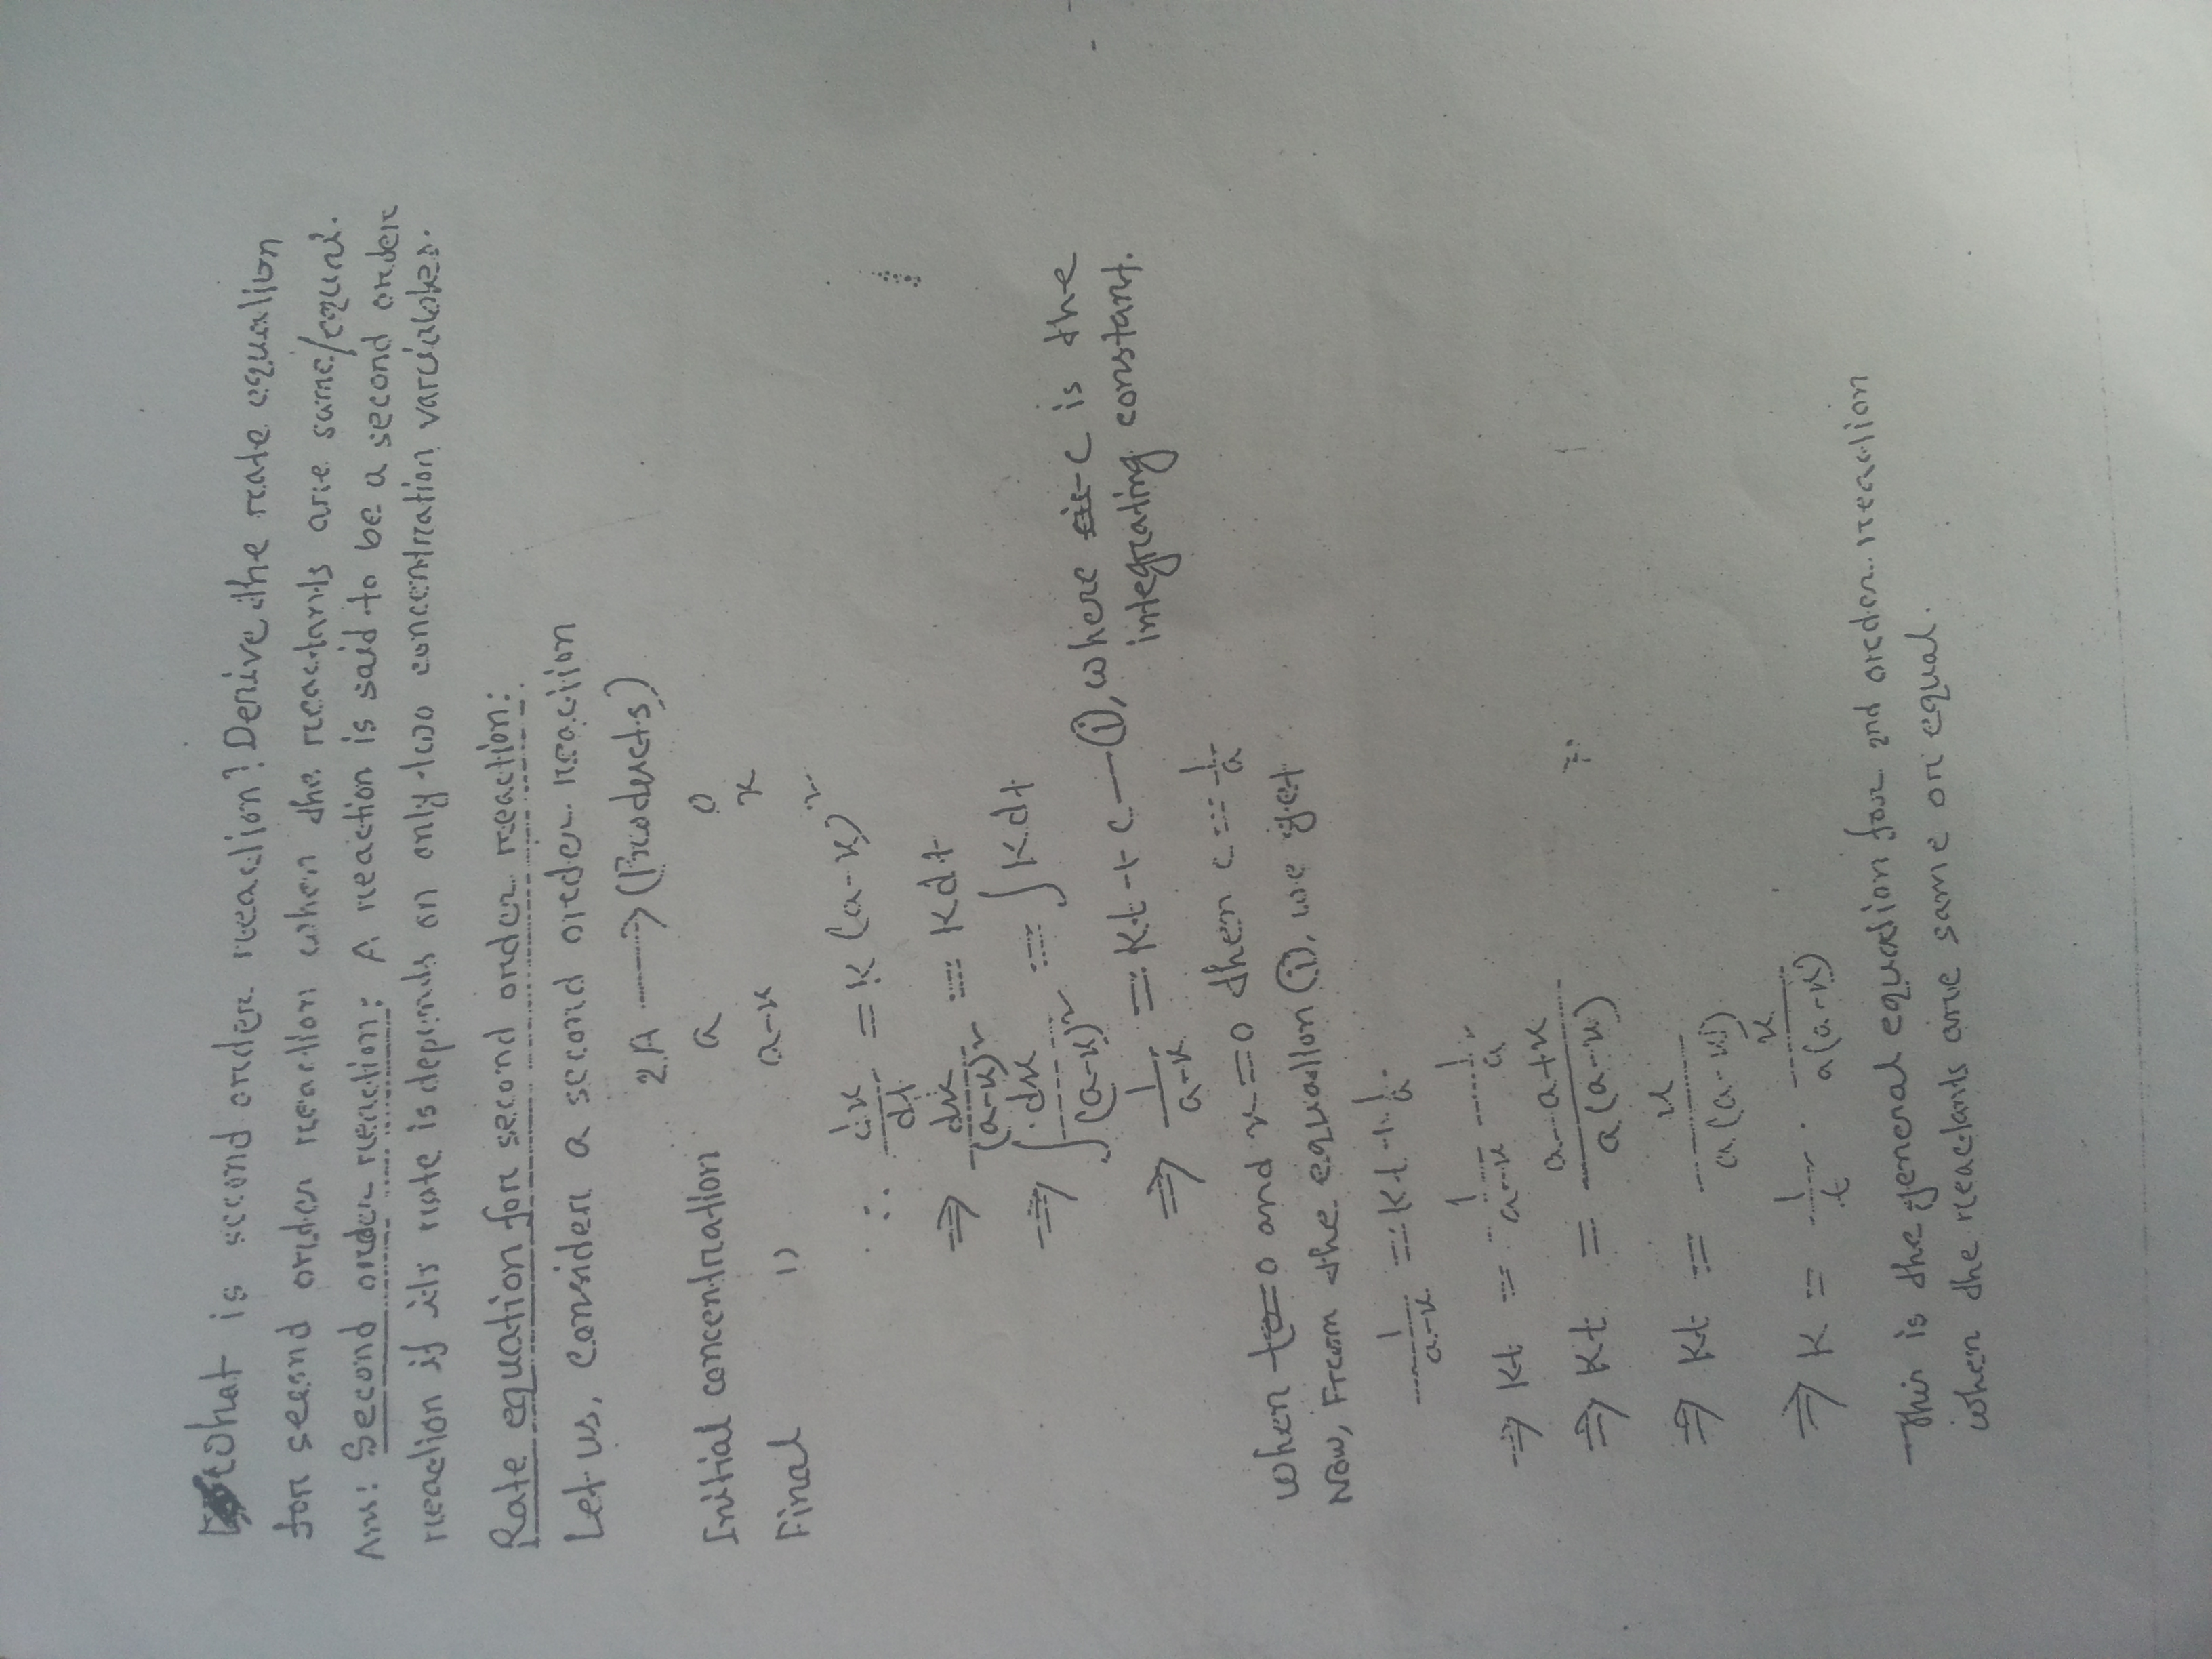 What is second order reaction? Derive the rate equation
for second order reaction when the reactants are same/equal.
Ans: Second order reaction: A reaction is said to be a second order
reaction if its rate is depends on only two concentration variables.
Rate equation for second order reaction:
Let us, Consider a second order reaction
2A ⟶ (Products)
Initial concentration a 0
Final 〃 a-x x
∴ dx/dt = K (a-x)²
⇒ dx/(a-x)² = Kdt
⇒ ∫dx/(a-x)² = ∫Kdt
⇒ 1/(a-x) = Kt + c — (i), where c is the
integrating constant.
When t=0 and x=0 then c = 1/a
Now, From the equation (i), we get
1/(a-x) = Kt + 1/a
⇒ Kt = 1/(a-x) - 1/a
⇒ Kt = (a-a+x)/(a(a-x))
⇒ Kt = x/(a(a-x))
⇒ K = 1/t · x/(a(a-x))
This is the general equation for 2nd order reaction
when the reactants are same or equal.